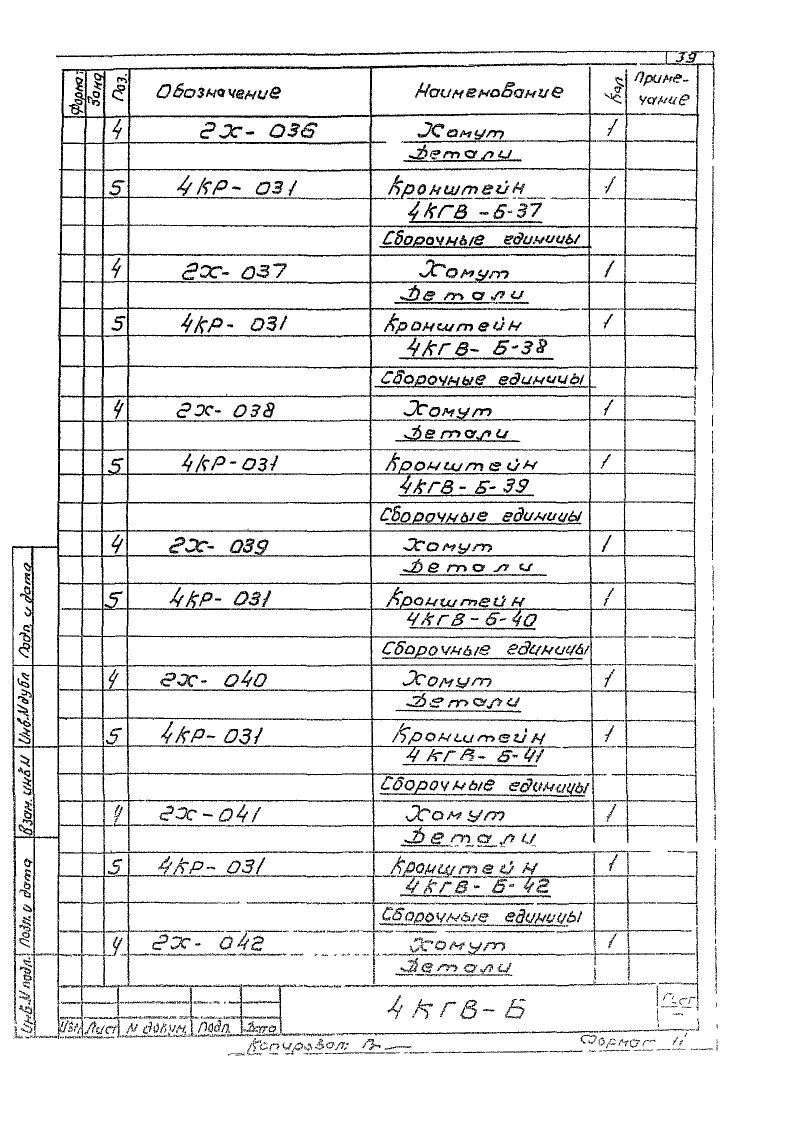 39
Формат Зона Поз. Обозначение Наименование Кол Приме-
чание
4 2Х- 036 Хомут 1
Детали
5 4КР- 031 Кронштейн 1
4КГВ -Б-37
Сборочные единицы
4 2Х- 037 Хомут 1
Детали
5 4КР- 031 Кронштейн 1
4КГВ- Б-38
Сборочные единицы
4 2Х- 038 Хомут 1
Детали
5 4КР-031 Кронштейн 1
4КГВ- Б- 39
Сборочные единицы
4 2Х- 039 Хомут 1
Детали
5 4КР- 031 Кронштейн 1
4КГВ- Б-40
Сборочные единицы
4 2Х- 040 Хомут 1
Детали
5 4КР- 031 Кронштейн 1
4 КГВ- Б-41
Сборочные единицы
4 2Х-041 Хомут 1
Детали
5 4КР- 031 Кронштейн 1
4КГВ- Б-42
Сборочные единицы
4 2Х- 042 Хомут 1
Детали
Подп. и дата
Инв.№дубл
Взам. инв.№
Подп. и дата
Инв.№ подл.
4 КГВ-Б
Лист
Изм. Лист № докум. Подп. Дата
Копировал:
Формат 11